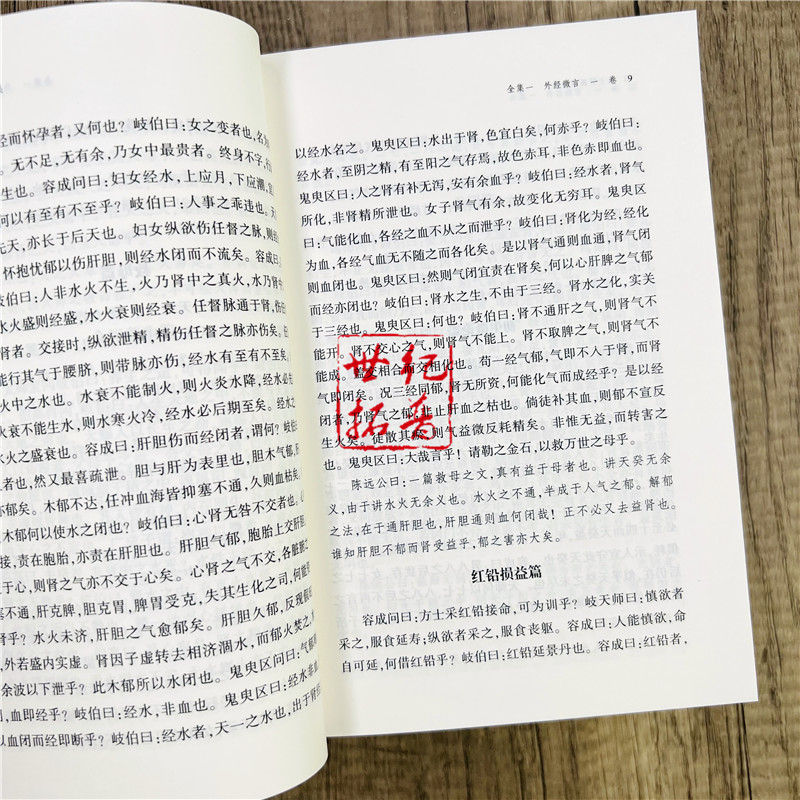 经而怀孕者,又何也?岐伯曰:女之变者也,名为
。无不足,无有余,乃女中最贵者。终身不字,行
生也。容成问曰:妇女经水,上应月,下应潮,宜
何以有至有不至乎?岐伯曰:人事之乖违也。天
先天,亦长于后天也。妇女纵欲伤任督之脉,则经
怀抱忧郁以伤肝胆,则经水闭而不流矣。容成曰
岐伯曰:人非水火不生,火乃肾中之真火,水乃肾中
水火盛则经盛,水火衰则经衰。任督脉通于肾,伤任
肾者。交接时,纵欲泄精,精伤任督之脉亦伤矣。
能行其气于腰脐,则带脉亦伤,经水有至有不至矣。
中之水也。水衰不能制火,则火炎水降,经水必
火衰不能生水,则水寒火冷,经水必后期至矣。经水
水火之盛衰也。容成曰:肝胆伤而经闭者,谓何?岐伯
者也,然又最喜疏泄。胆与肝为表里也,胆木气郁,肝
。木郁不达,任冲血海皆抑塞不通,久则血枯矣。
木郁何以使水之闭也?岐伯曰:心肾无咎不交者也,心
接,责在胞胎,亦责在肝胆也。肝胆气郁,胞胎上交肝胆
于心,则肾之气亦不交于心矣。心肾之气不交,各脏腑之
塞不通,肝克脾,胆克胃,脾胃受克,失其生化之司,何能
肾乎?水火未济,肝胆之气愈郁矣。肝胆久郁,反现假
,外若盛内实虚。肾因子虚转去相济涸水,而郁火焚之
余波以下泄乎?此木郁所以水闭也。鬼臾区问曰:气郁则
,血即经乎?岐伯曰:经水,非血也。鬼臾区曰:经水非血
以血闭而经即断乎?岐伯曰:经水者,天一之水也,出于肾经
全集一 外经微言 一 卷 9
以经水名之。鬼臾区曰:水出于肾,色宜白矣,何赤乎?岐伯曰:
经水者,至阴之精,有至阳之气存焉,故色赤耳,非色赤即血也。
鬼臾区曰:人之肾有补无泻,安有余血乎?岐伯曰:经水者,肾气
所化,非肾精所泄也。女子肾气有余,故变化无穷耳。鬼臾区
曰:气能化血,各经之血不从之而泄乎?岐伯曰:肾化为经,经化
为血,各经气血无不随之而各化矣。是以肾气通则血通,肾气闭
则血闭也。鬼臾区曰:然则气闭宜责在肾矣,何以心肝脾之气郁
而经亦闭也?岐伯曰:肾水之生,不由于三经。肾水之化,实关
于三经也。鬼臾区曰:何也?岐伯曰:肾不通肝之气,则肾气不
能开。肾不交心之气,则肾气不能上。肾不取脾之气,则肾气不
能成。盖交相合而交相化也。苟一经气郁,气即不入于肾,而肾
气即闭矣。况三经同郁,肾无所资,何能化气而成经乎?是以经
闭者,乃肾气之郁,非止肝血之枯也。倘徒补其血,则郁不宣反
生火矣。徒散其瘀,则气益微反耗精矣。非惟无益,而转害之
也。鬼臾区曰:大哉言乎!请勒之金石,以救万世之母乎。
陈远公曰:一篇救母之文,真有益于母者也。讲天癸无余
义,由于讲水火无余义也。水火之不通,半成于人气之郁。解郁
之法,在于通肝胆也,肝胆通则血何闭哉!正不必又去益肾也。
谁知肝胆不郁而肾受益乎,郁之害亦大矣。
红铅损益篇
容成问曰:方士采红铅接命,可为训乎?岐天师曰:慎欲者
采之,服食延寿;纵欲者采之,服食丧躯。容成曰:人能慎欲,命
自可延,何借红铅乎?岐伯曰:红铅延景丹也。容成曰:红铅者,
世纪
拓普